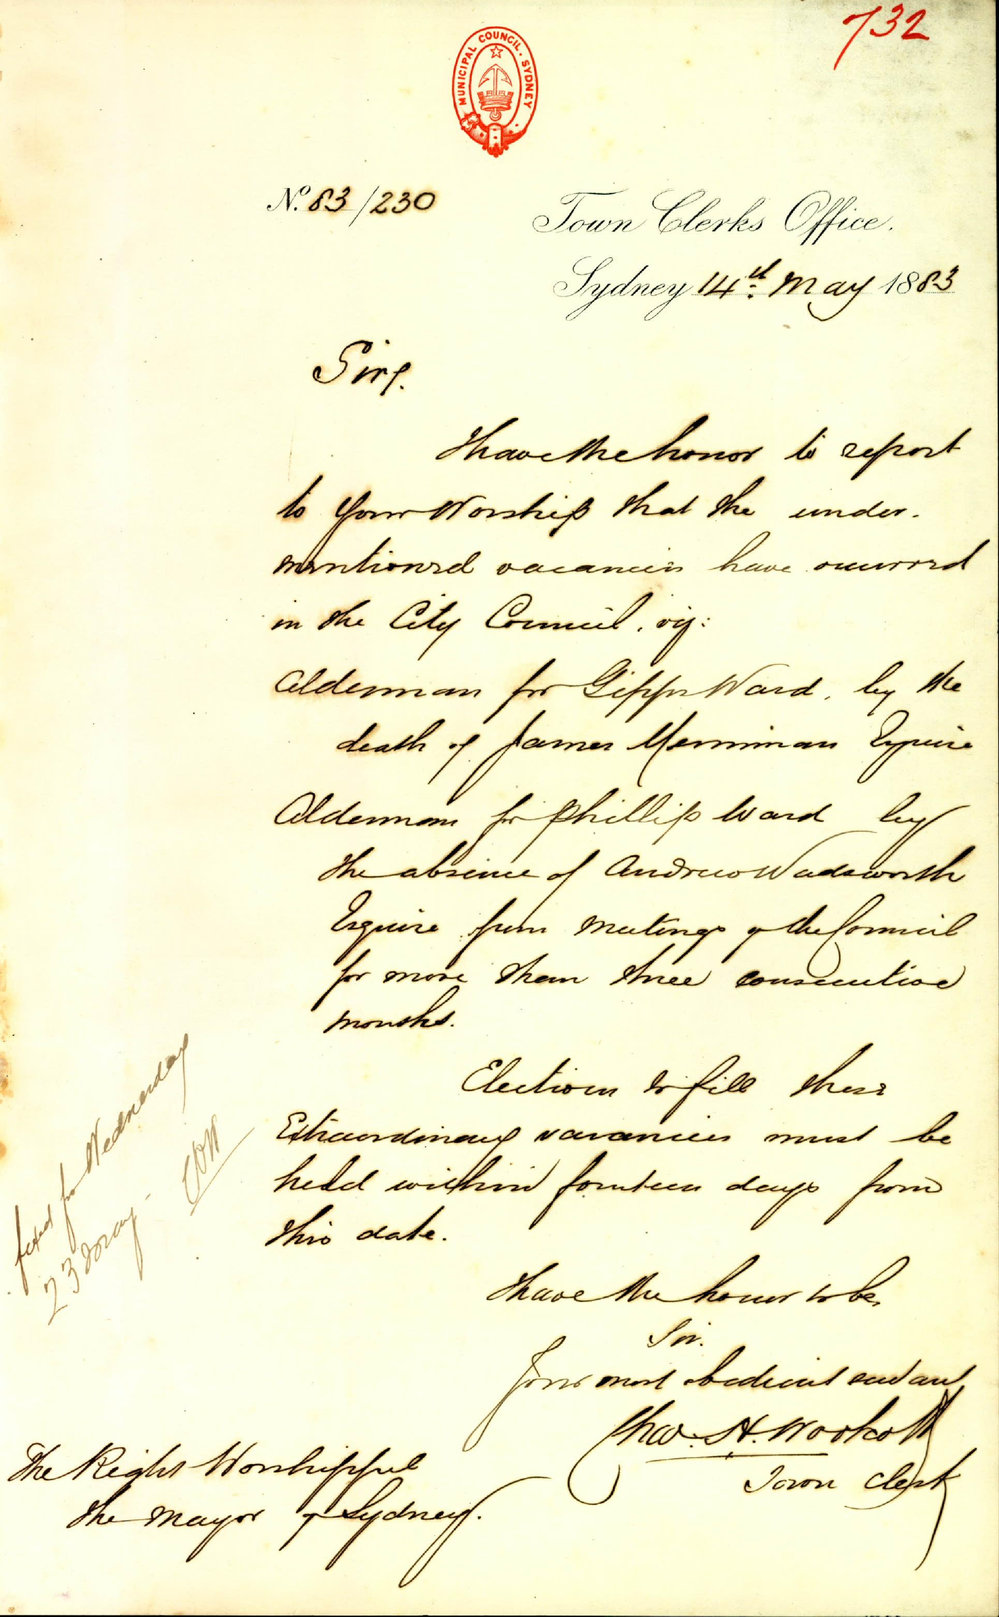 732
MUNICIPAL COUNCIL. SYDNEY
No. 83/230
Town Clerks Office.
Sydney 14th May 1883
Sir,
I have the honor to report
to Your Worship that the under-
mentioned vacancies have occurred
in the City Council, viz:
Alderman for Gipps Ward, by the
death of James Merriman Esquire
Alderman for Phillip Ward by
the absence of Andrew Wadsworth
Esquire from meetings of the Council
for more than three consecutive
months.
Elections to fill these
Extraordinary vacancies must be
held within fourteen days from
this date.
fixed for Wednesday
23 May -
I have the honor to be,
Sir.
Your most obedient servant
Chas. H. Woolcott
Town Clerk
The Right Worshipful
the Mayor of Sydney.